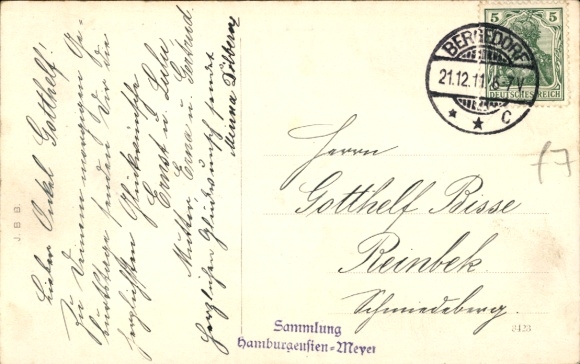 Lieber Onkel Gotthelf!
Zu Deinem morgigen Ge-
burtstage senden Dir die
herzlichsten Glückwünsche
Ernst u. Lulu
Mutter, Erna u. Gertrud.
Herzlichen Glückwunsch sendet
Minna
J. B. B.
5 5
DEUTSCHES REICH
BERGEDORF
21.12.11. 6-7 V
* * C
Herrn
Gotthelf Bisse
Reinbek.
Schmiedeberg.
8423
f7
Sammlung
Hamburgensien-Meyer